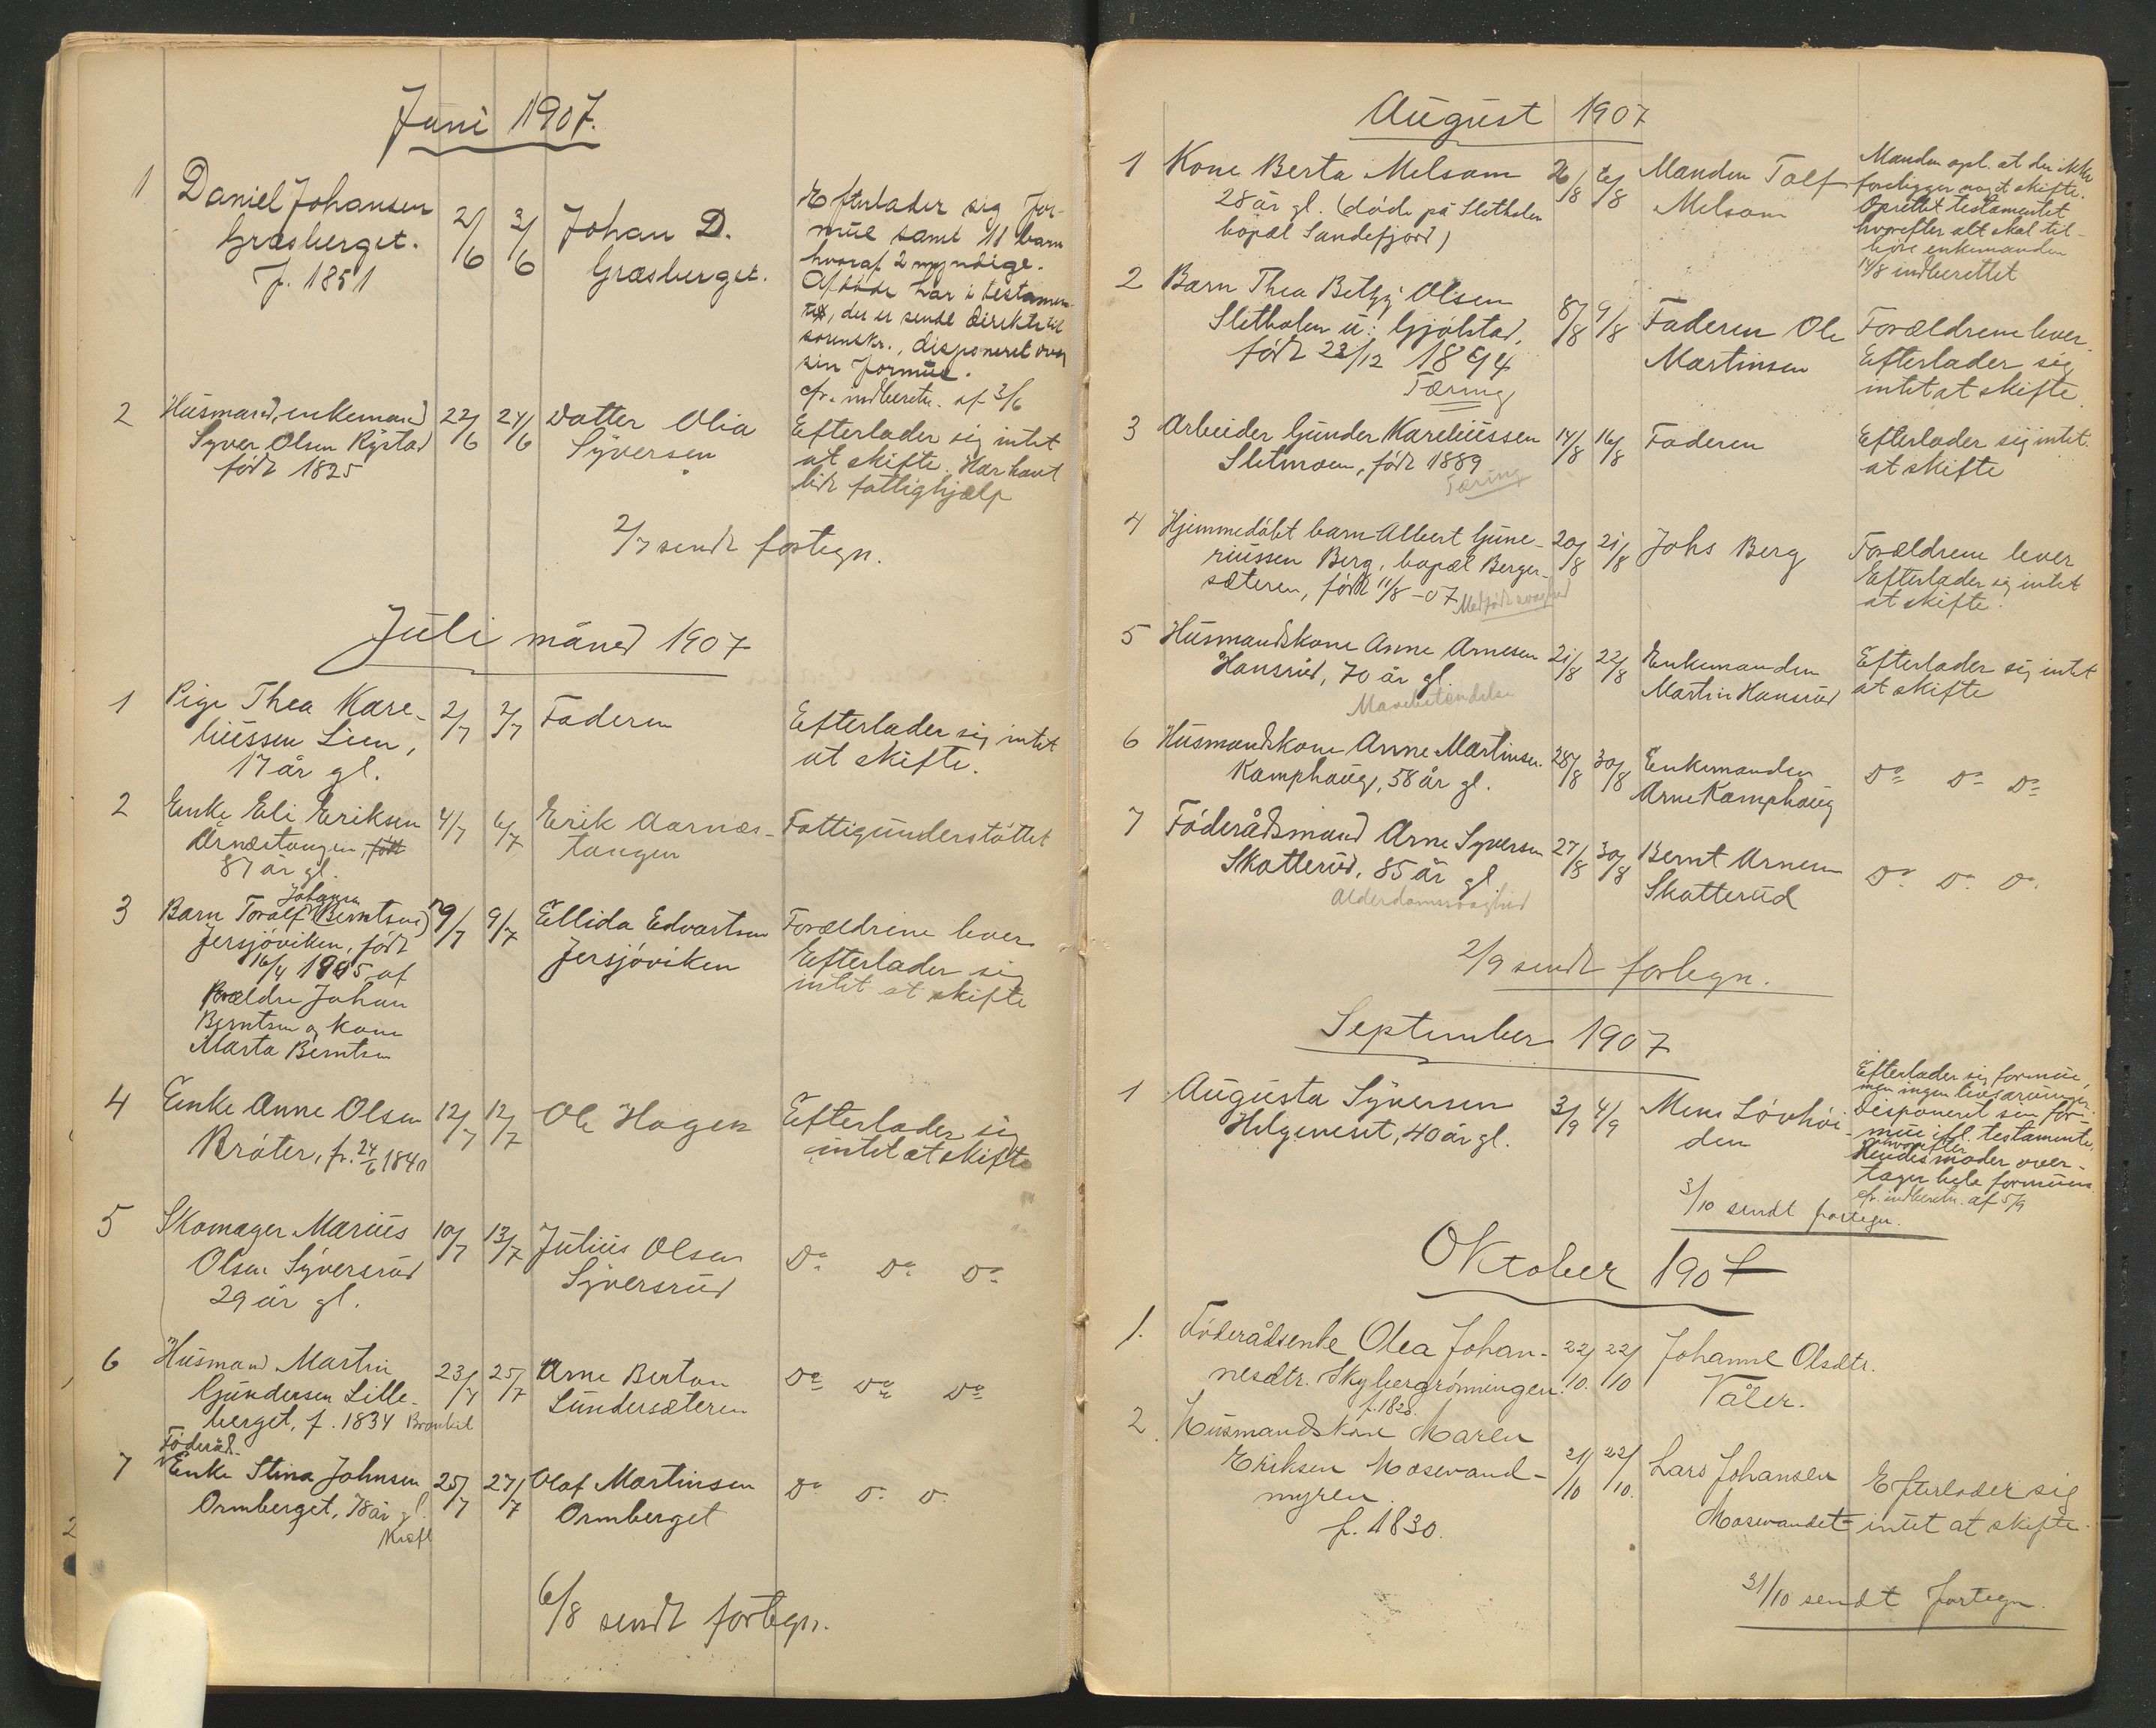 Juni 1907.
1 Daniel Johansen
Græsberget.
f. 1851
2/6 3/6
Johan D.
Græsberget.
Efterlader sig for-
mue samt 11 barn
hvoraf 2 myndige.
Afdøde har i testamen-
te, der er sendt direkte til
sorenskr., disponeret over
sin formue.
cfr. indberetn. af 3/6
2 Husmand, enkemand
Syver Olsen Rÿstad
født 1825
22/6 24/6
Datter Olia
Sÿversen
Efterlader sig intet
at skifte. Har havt
lidt fattighjælp
2/7 sendt fortegn.
Juli måned 1907
1 Pige Thea Kare-
liussen Lien,
17 år gl.
2/7 2/7
Faderen
Efterlader sig intet
at skifte.
2 Enke Eli Eriksen
Årnæstangen, født
87 år gl.
4/7 6/7
Erik Aarnæs-
tangen
Fattigunderstøttet
3 Barn Toralf Johansen (Berntsen)
Jersjøviken, født
16/4 1905 af
Forældre Johan
Berntsen og kone
Marta Berntsen
9/7 9/7
Ellida Edvartsen
Jersjøviken
Forældrene lever
Efterlader sig
intet at skifte
4 Enke Anne Olsen
Bråter, f. 24/6 1840
12/7 12/7
Ole Hagen
Efterlader sig
intet at skifte
5 Skomager Marius
Olsen Sÿversrud
29 år gl.
10/7 13/7
Julius Olsen
Sÿversrud
Do Do Do
6 Husmand Martin
Gundersen Lille-
berget, f. 1834
23/7 25/7
Arne Berton
Lundersæteren
Do Do Do
7 Føderåd-
Enke Stina Johnsen
Ormberget, 78 år gl.
Kræft
25/7 27/7
Olaf Martinsen
Ormberget
Do Do Do
6/8 sendt fortegn.
August 1907
1 Kone Berta Melsom
28 år gl. (døde på Sletholen
bopæl Sandefjord)
Manden Tolf
Melsom
Manden opl. at der ikke
foreligger noget skifte.
Oprettet testamentet
hvorefter alt skal til-
høre enkemanden
14/8 indberettet
2 Barn Thea Betzÿ Olsen
Sletholen u: Gjølstad,
født 23/12 1894
Tæring
8/8 9/8
Faderen Ole
Martinsen
Forældrene lever.
Efterlader sig
intet at skifte.
3 Arbeider Gunder Kareliussen
Sletmoen, født 1889
Tæring
14/8 16/8
Faderen
Efterlader sig intet
at skifte
4 Hjemmedøbt barn Albert Gune-
riussen Berg, bopæl Berger-
sæteren, født 11/8 -07
Medfødt svaghed
20/8 21/8
Johs Berg
Forældrene lever
Efterlader sig intet
at skifte.
5 Husmandskone Anne Arnesen
Hansrud, 70 år gl.
21/8 22/8
Enkemanden
Martin Hansrud
Efterlader sig intet
at skifte
6 Husmandskone Anne Martinsen
Kamphaug, 58 år gl.
28/8 30/8
Enkemanden
Arne Kamphaug
Do Do Do
7 Føderådsmand Arne Syversen
Skatterud, 85 år gl
Alderdomssvaghed
27/8 30/8
Bernt Arnesen
Skatterud
Do Do Do.
2/9 sendt fortegn.
September 1907
1 Augusta Sÿversen
Helgeneset, 40 år gl.
3/9 4/9
Mens Løvhöi-
den
Efterlader sig formue,
men ingen livsarvinger.
Disponeret sin for-
mue ifl. testamente,
hvorefter
Hendes moder over-
tager hele formuen
cfr. indberetn. af 5/9
3/10 sendt fortegn.
Oktober 1907
1. Føderådsenke Olea Johan-
nesdtr. Skybergrønningen.
f. 1828.
22/10. 22/10
Johanne Olsdtr.
Våler.
2. Husmandskone Maren
Eriksen Mosevand-
myren.
f. 1830.
21/10 22/10.
Lars Johansen
Mosevandet
Efterlader sig
intet at skifte.
31/10 sendt fortegn.